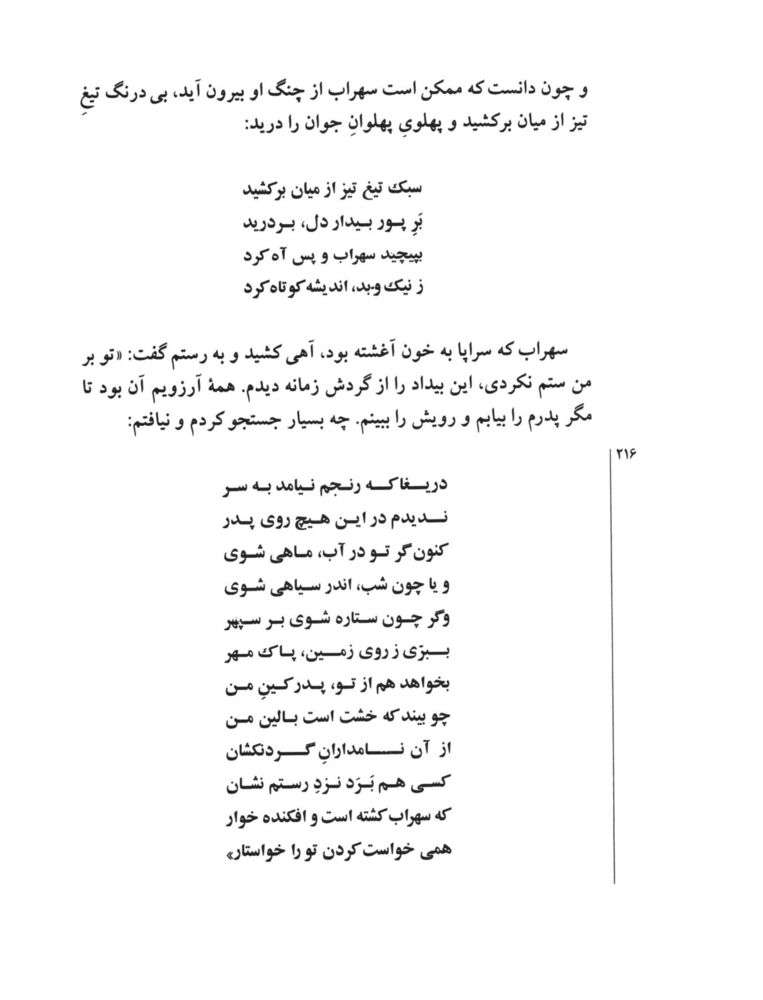 و چون دانست که ممکن است سهراب از چنگ او بیرون آید، بی درنگ تیغِ
تیز از میان برکشید و پهلویِ پهلوانِ جوان را درید:
سبک تیغ تیز از میان برکشید
بَرِ پور بیدار دل، بردرید
بپیچید سهراب و پس آه کرد
ز نیک و بد، اندیشه کوتاه کرد
سهراب که سراپا به خون آغشته بود، آهی کشید و به رستم گفت: «تو بر
من ستم نکردی، این بیداد را از گردش زمانه دیدم. همهٔ آرزویم آن بود تا
مگر پدرم را بیابم و رویش را ببینم. چه بسیار جستجو کردم و نیافتم:
۲۱۶
دریغا که رنجم نیامد به سر
ندیدم در این هیچ روی پدر
کنون گر تو در آب، ماهی شوی
و یا چون شب، اندر سیاهی شوی
وگر چون ستاره شوی بر سپهر
ببرّی ز روی زمین، پاک مهر
بخواهد هم از تو، پدر کینِ من
چو بیند که خشت است بالین من
از آن نامدارانِ گردنکشان
کسی هم بَرَد نزدِ رستم نشان
که سهراب کشته است و افکنده خوار
همی خواست کردن تو را خواستار»